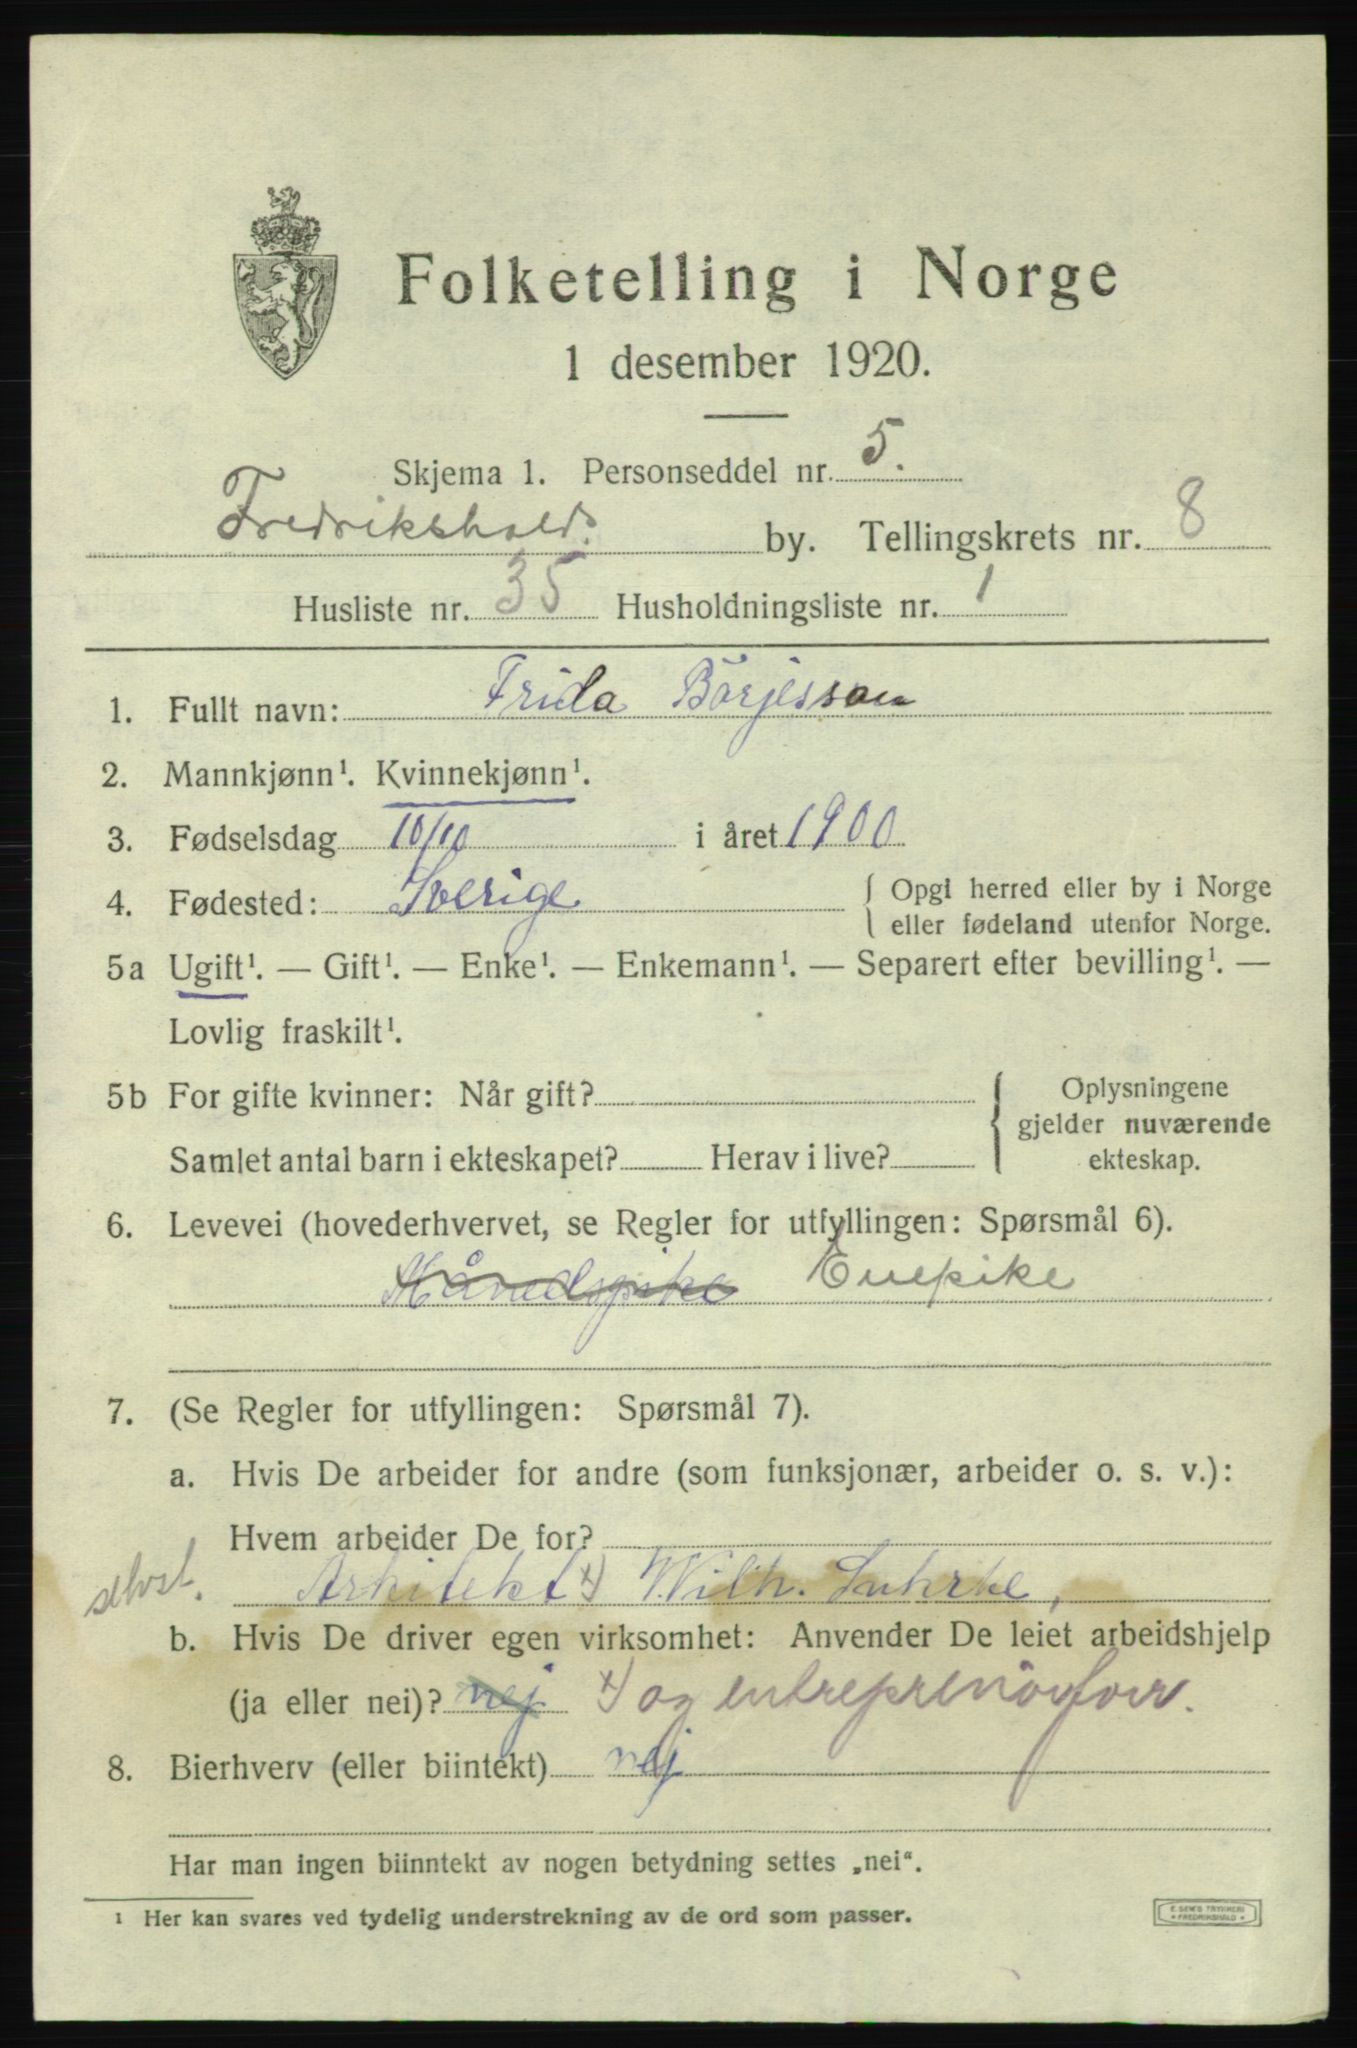 Folketelling i Norge
1 desember 1920.
Skjema 1. Personseddel nr. 5.
Fredrikshalds by. Tellingskrets nr. 8
Husliste nr. 35 Husholdningsliste nr. 1
1. Fullt navn: Frida Börjesson
2. Mannkjønn¹. Kvinnekjønn¹.
3. Fødselsdag 10/10 i året 1900
4. Fødested: Sverige { Opgi herred eller by i Norge
eller fødeland utenfor Norge.
5a Ugift¹. — Gift¹. — Enke¹. — Enkemann¹. — Separert efter bevilling¹. —
Lovlig fraskilt¹.
5b For gifte kvinner: Når gift? { Oplysningene
gjelder nuværende
Samlet antal barn i ekteskapet? Herav i live? ekteskap.
6. Levevei (hovederhvervet, se Regler for utfyllingen: Spørsmål 6).
Månedspike Enepike
7. (Se Regler for utfyllingen: Spørsmål 7).
a. Hvis De arbeider for andre (som funksjonær, arbeider o. s. v.):
Hvem arbeider De for?
selvst. Arkitekt x) Wilh. Luhrke,
b. Hvis De driver egen virksomhet: Anvender De leiet arbeidshjelp
(ja eller nei)? nej x) og entreprenör
8. Bierhverv (eller biintekt) nej
Har man ingen biinntekt av nogen betydning settes „nei“.
1 Her kan svares ved tydelig understrekning av de ord som passer.
E. SEM'S TRYKKERI
FREDRIKSHALD